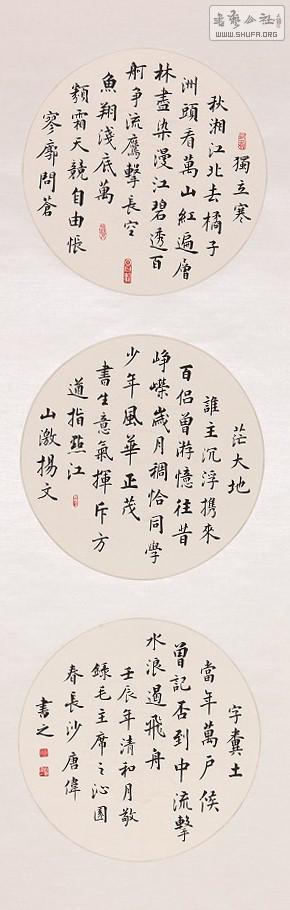 書藝公社
WWW.SHUFA.ORG
獨立寒
秋湘江北去橘子
洲頭看萬山紅遍層
林盡染漫江碧透百
舸争流鷹擊長空
魚翔淺底萬
類霜天競自由悵
寥廓問蒼
茫大地
誰主沉浮携來
百侶曾游憶往昔
崢嶸歲月稠恰同學
少年風華正茂
書生意氣揮斥方
遒指點江
山激揚文
字糞土
當年萬戶侯
曾記否到中流擊
水浪遏飛舟
壬辰年清和月敬
錄毛主席之沁園
春長沙唐偉
書之